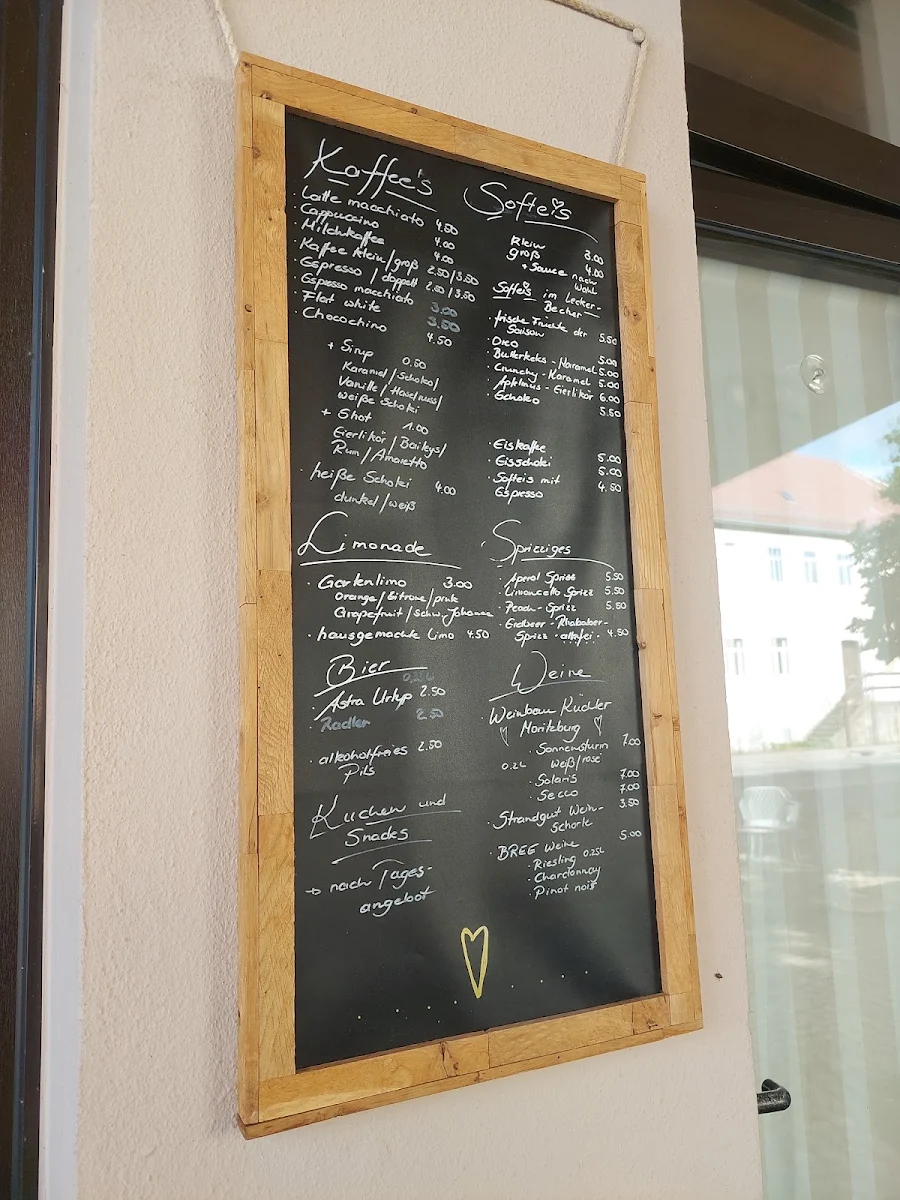 Kaffee's
· Latte macchiato 4.50
· Cappuccino 4.00
· Milchkaffee 4.00
· Kaffee klein/groß 2.50/3.50
· Espresso / doppelt 2.50/3.50
· Espresso macchiato 3.00
· Flat white 3.50
· Chocochino 4.50
+ Sirup 0.50
Karamel/Schoko/
Vanille/Haselnuss/
weiße Schoki
+ Shot 1.00
Eierlikör/Baileys/
Rum/Amaretto
· heiße Schoki 4.00
dunkel/weiß
Limonade
· Gartenlimo 3.00
Orange/Zitrone/pink
Grapefruit/schw. Johanna
· hausgemachte Limo 4.50
Bier
0,25L
· Astra Urtyp 2.50
· Radler 2.50
· alkoholfreies 2.50
Pils
Kuchen und
Snacks
→ nach Tages-
angebot
Softeis
klein 3.00
groß 4.00
+ Sauce nach
Wahl
Softeis im Lecker-
Becher
· frische Früchte der
Saison 5.50
· Oreo 5.00
· Butterkeks - Karamel 5.00
· Crunchy - Karamel 5.00
· Apfelmus - Eierlikör 6.00
· Schoko 5.50
· Eiskaffee 5.00
· Eisschoki 5.00
· Softeis mit 4.50
Espresso
Sprizziges
· Aperol Sprizz 5.50
· Limoncello Sprizz 5.50
· Peach - Sprizz 5.50
· Erdbeer - Rhabarber-
Sprizz · alkfrei · 4.50
Weine
Weinbau Rüdiger
Moritzburg
· Sonnensturm 7.00
0.2L weiß/rosé
· Solaris 7.00
· Secco 7.00
· Strandgut Wein- 3.50
schorle
· BREE Weine 5.00
· Riesling 0.25L
· Chardonnay
· Pinot noir